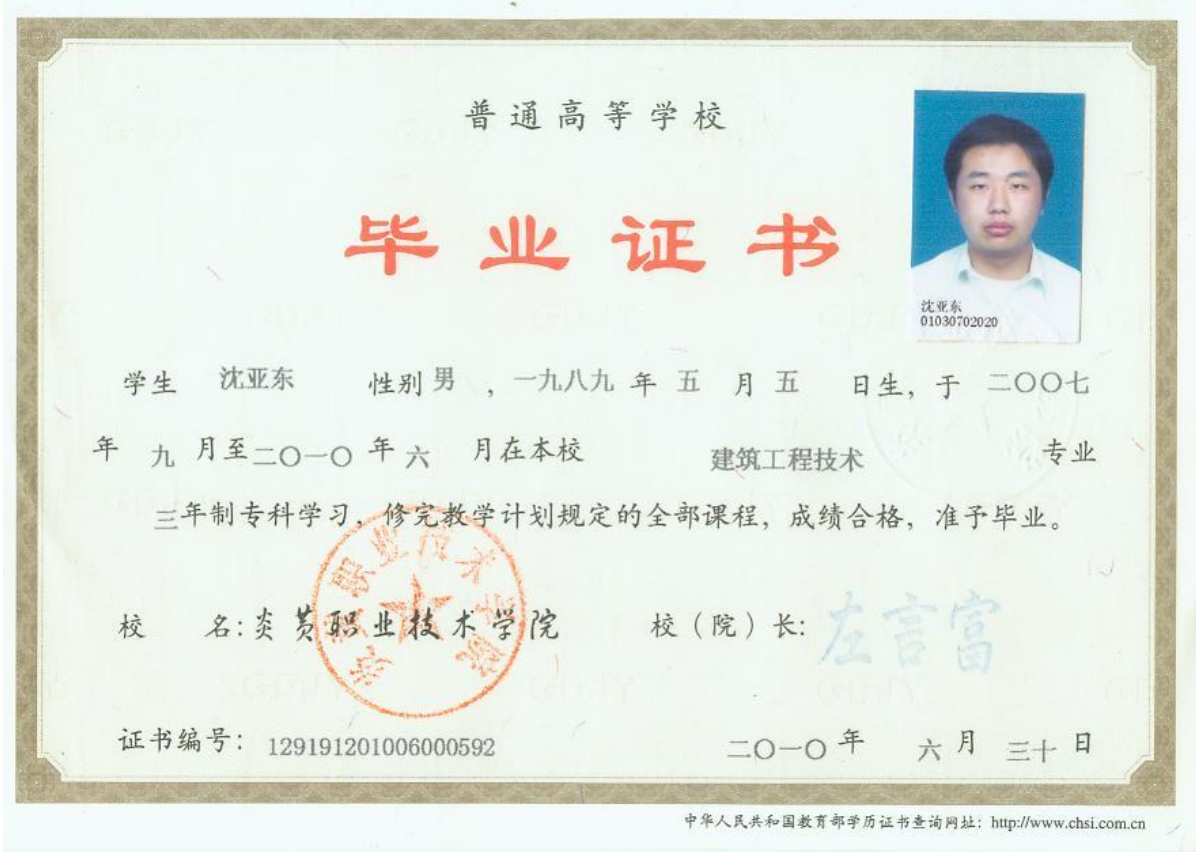 普通高等学校
毕业证书
沈亚东
01030702020
学生 沈亚东 性别 男 ，一九八九 年 五 月 五 日生，于 二〇〇七
年 九 月至 二〇一〇 年 六 月在本校 建筑工程技术 专业
三年制专科学习，修完教学计划规定的全部课程，成绩合格，准予毕业。
炎黄职业技术学院
校 名：炎黄职业技术学院 校（院）长：左言富
证书编号：129191201006000592 二〇一〇 年 六 月 三十 日
中华人民共和国教育部学历证书查询网址：http://www.chsi.com.cn